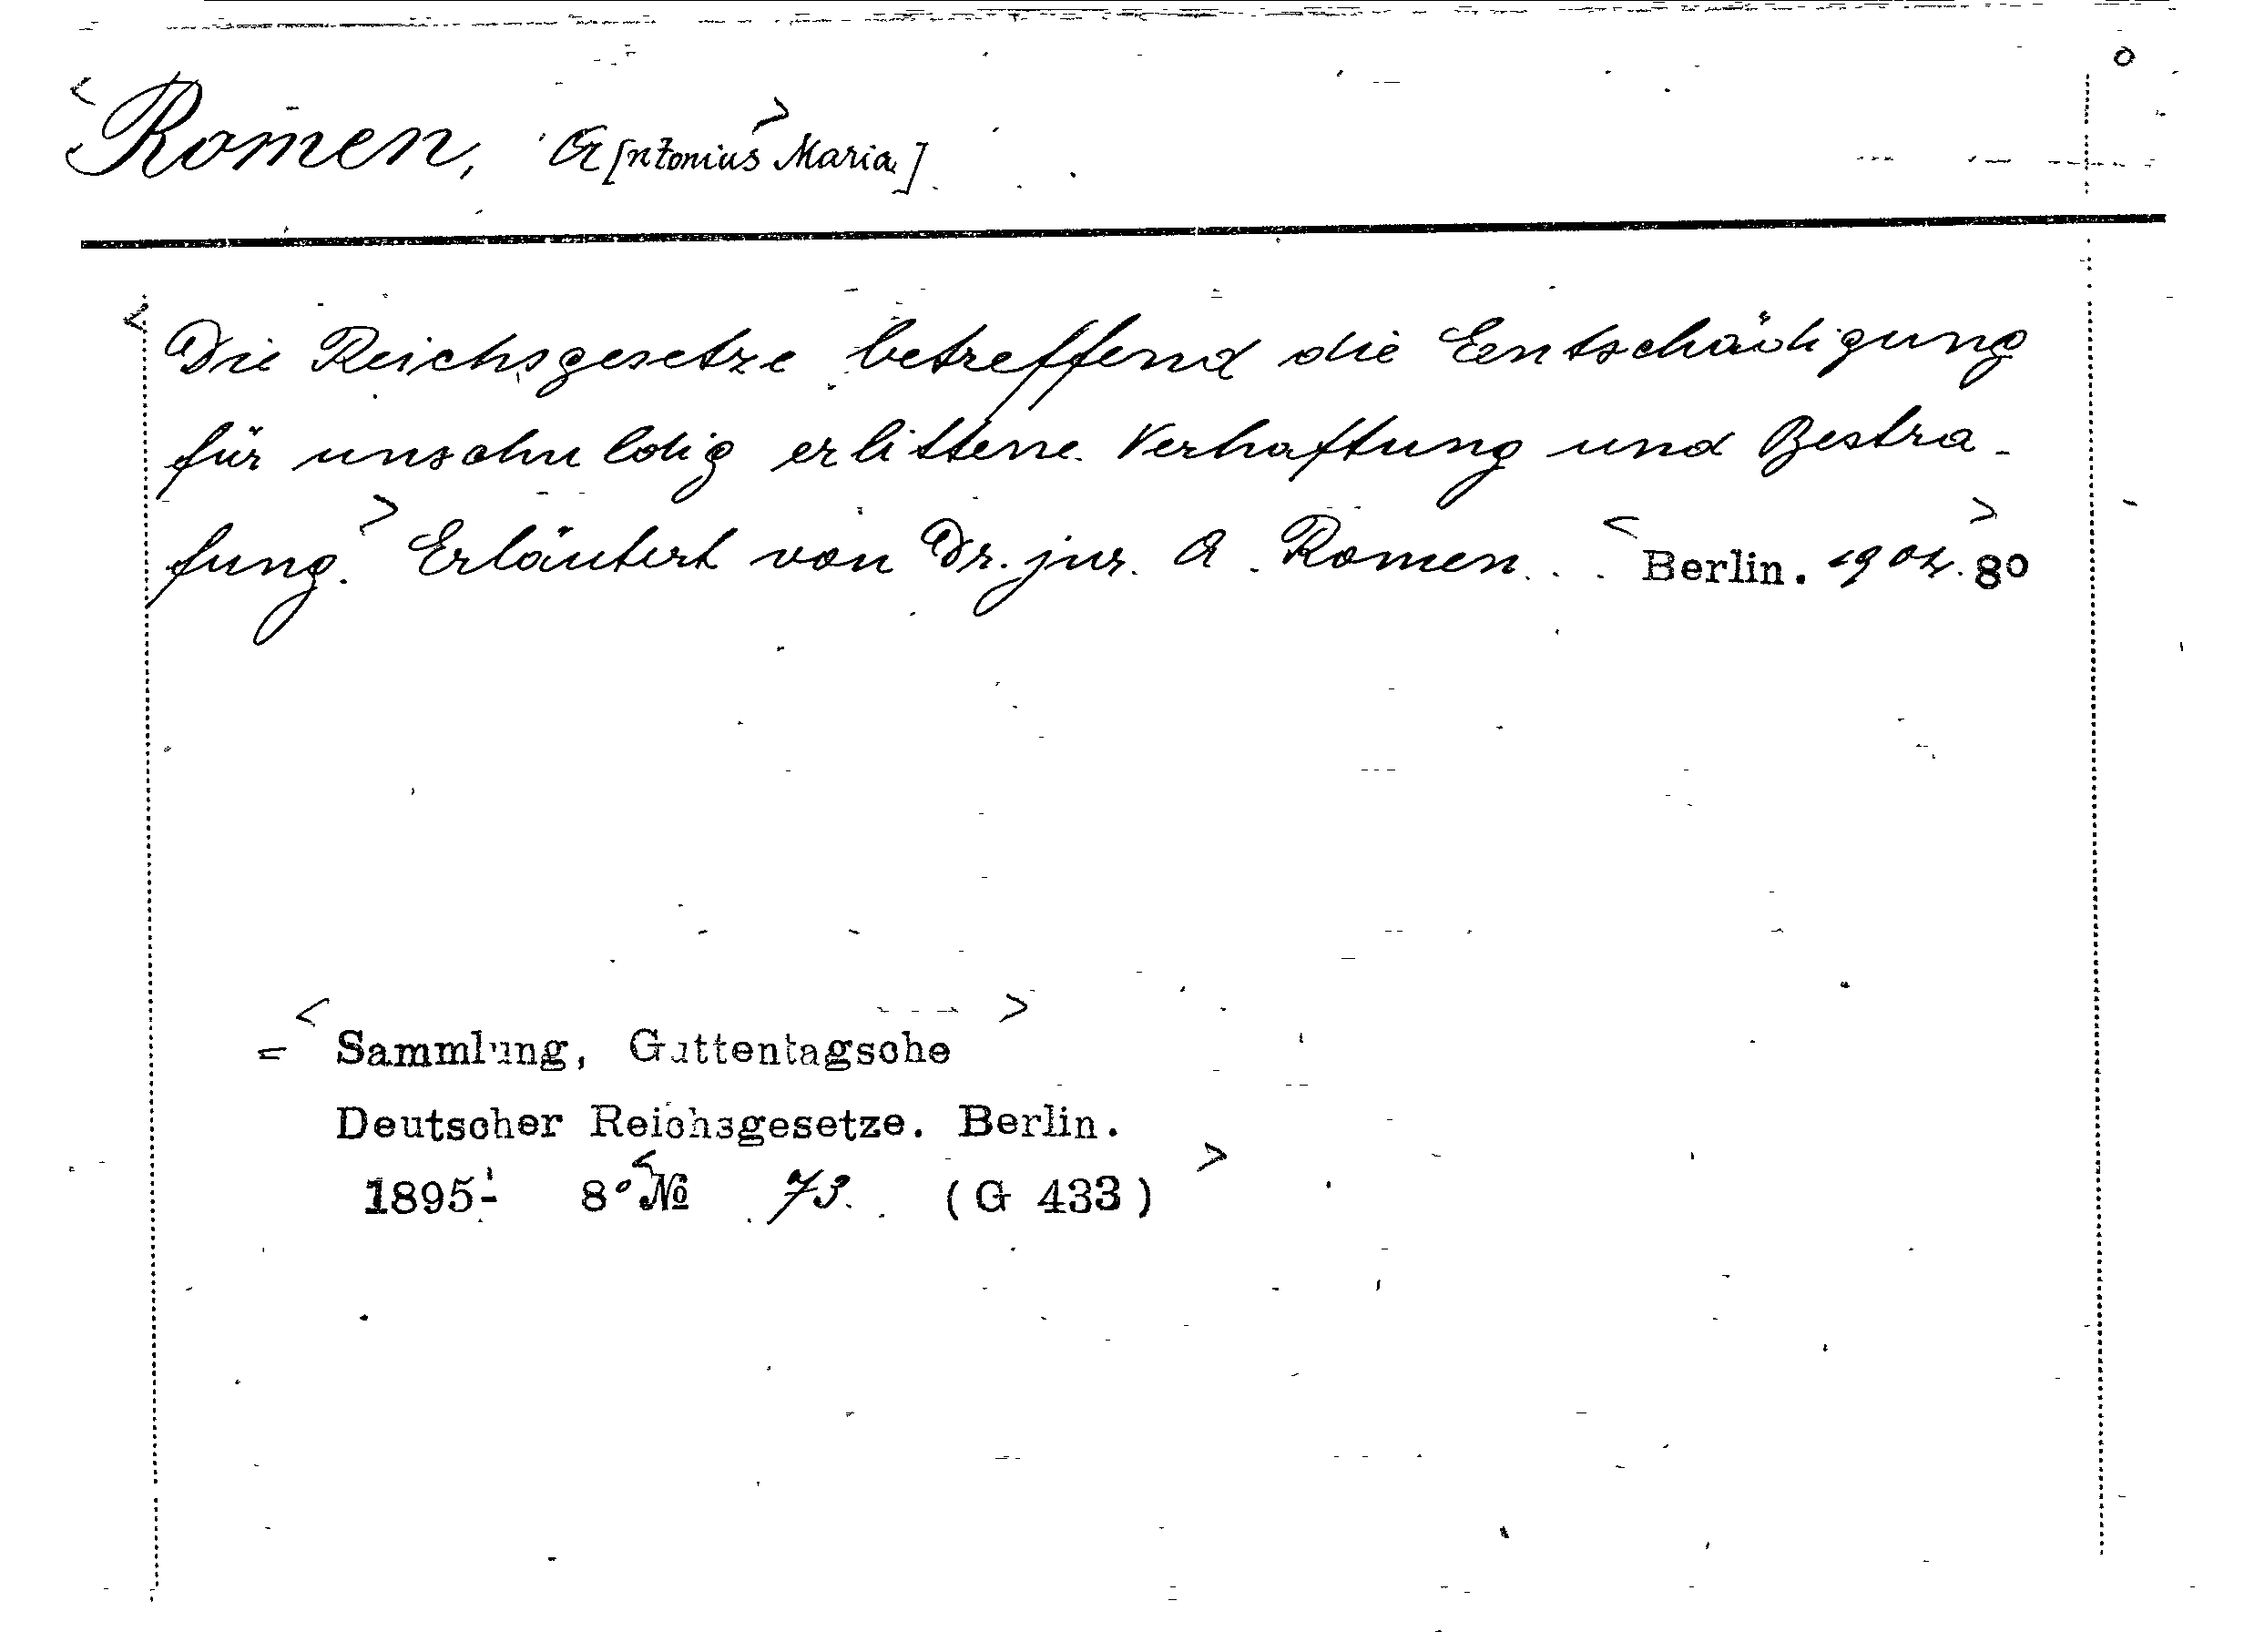 Romen, A[ntonius Maria]
Die Reichsgesetze betreffend die Entschädigung
für unschuldig erlittene Verhaftung und Bestra-
fung. Erläutert von Dr. jur. A. Romen... Berlin. 1904. 8o
= Sammlung, Guttentagsche
Deutscher Reichsgesetze. Berlin.
1895- 8° No 73. (G 433)